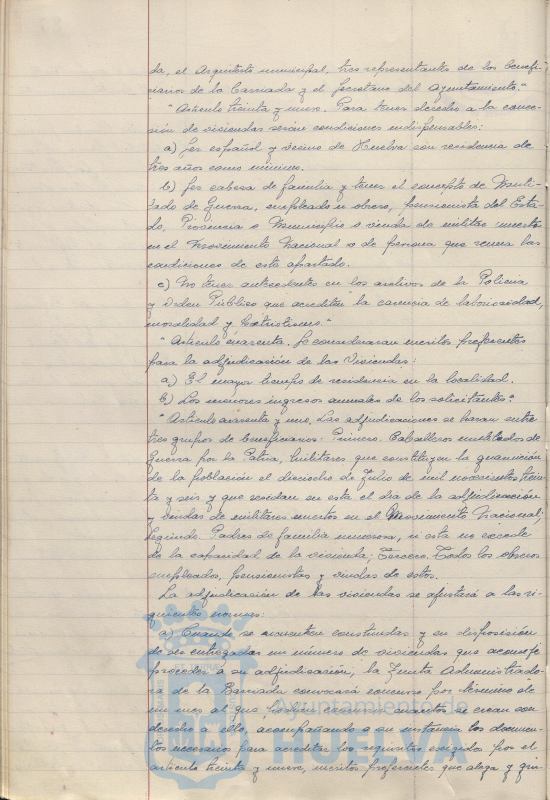 da, el Arquitecto municipal, tres representantes de los benefi-
ciarios de la Barriada y el Secretario del Ayuntamiento."
"Artículo treinta y nueve. Para tener derecho a la conce-
sión de viviendas serán condiciones indispensables:
a) Ser español y vecino de Huelva con residencia de
tres años como mínimo.
b) Ser cabeza de familia y tener el concepto de Muti-
lado de Guerra, empleado u obrero, pensionista del Esta-
do, Provincia o Municipio o viuda de militar muerto
en el Movimiento Nacional o de persona que reuna las
condiciones de este apartado.
c) No tener antecedentes en los archivos de la Policia
y Orden Público que acrediten la carencia de laboriosidad,
moralidad y patriotismo."
"Artículo cuarenta. Se considerarán méritos preferentes
para la adjudicación de las Viviendas:
a) El mayor tiempo de residencia en la localidad.
b) Los menores ingresos anuales de los solicitantes."
"Artículo cuarenta y uno. Las adjudicaciones se harán entre
tres grupos de beneficiarios: Primero. Caballeros mutilados de
Guerra por la Patria, militares que constituyen la guarnición
de la población el dieciocho de Julio de mil novecientos trein-
ta y seis y que residan en esta el dia de la adjudicación
y viudas de militares muertos en el Movimiento Nacional;
Segundo Padres de familia numerosa, si esta no excede
de la capacidad de la vivienda; Tercero. Todos los obreros
empleados, pensionistas y viudas de estos.
La adjudicación de las viviendas se ajustará a las si-
guientes normas:
a) Cuando se encuentren construidas y en disposición
de ser entregadas un número de viviendas que aconseje
proceder a su adjudicación, la Junta Administrado-
ra de la Barriada convocará concurso por término de
un mes al que podrán concurrir cuantos se crean con
derecho a ello, acompañando a su instancia los documen-
tos necesarios para acreditar los requisitos exigidos por el
artículo treinta y nueve, méritos preferentes que alega y gru-
Ayuntamiento de
HUELVA